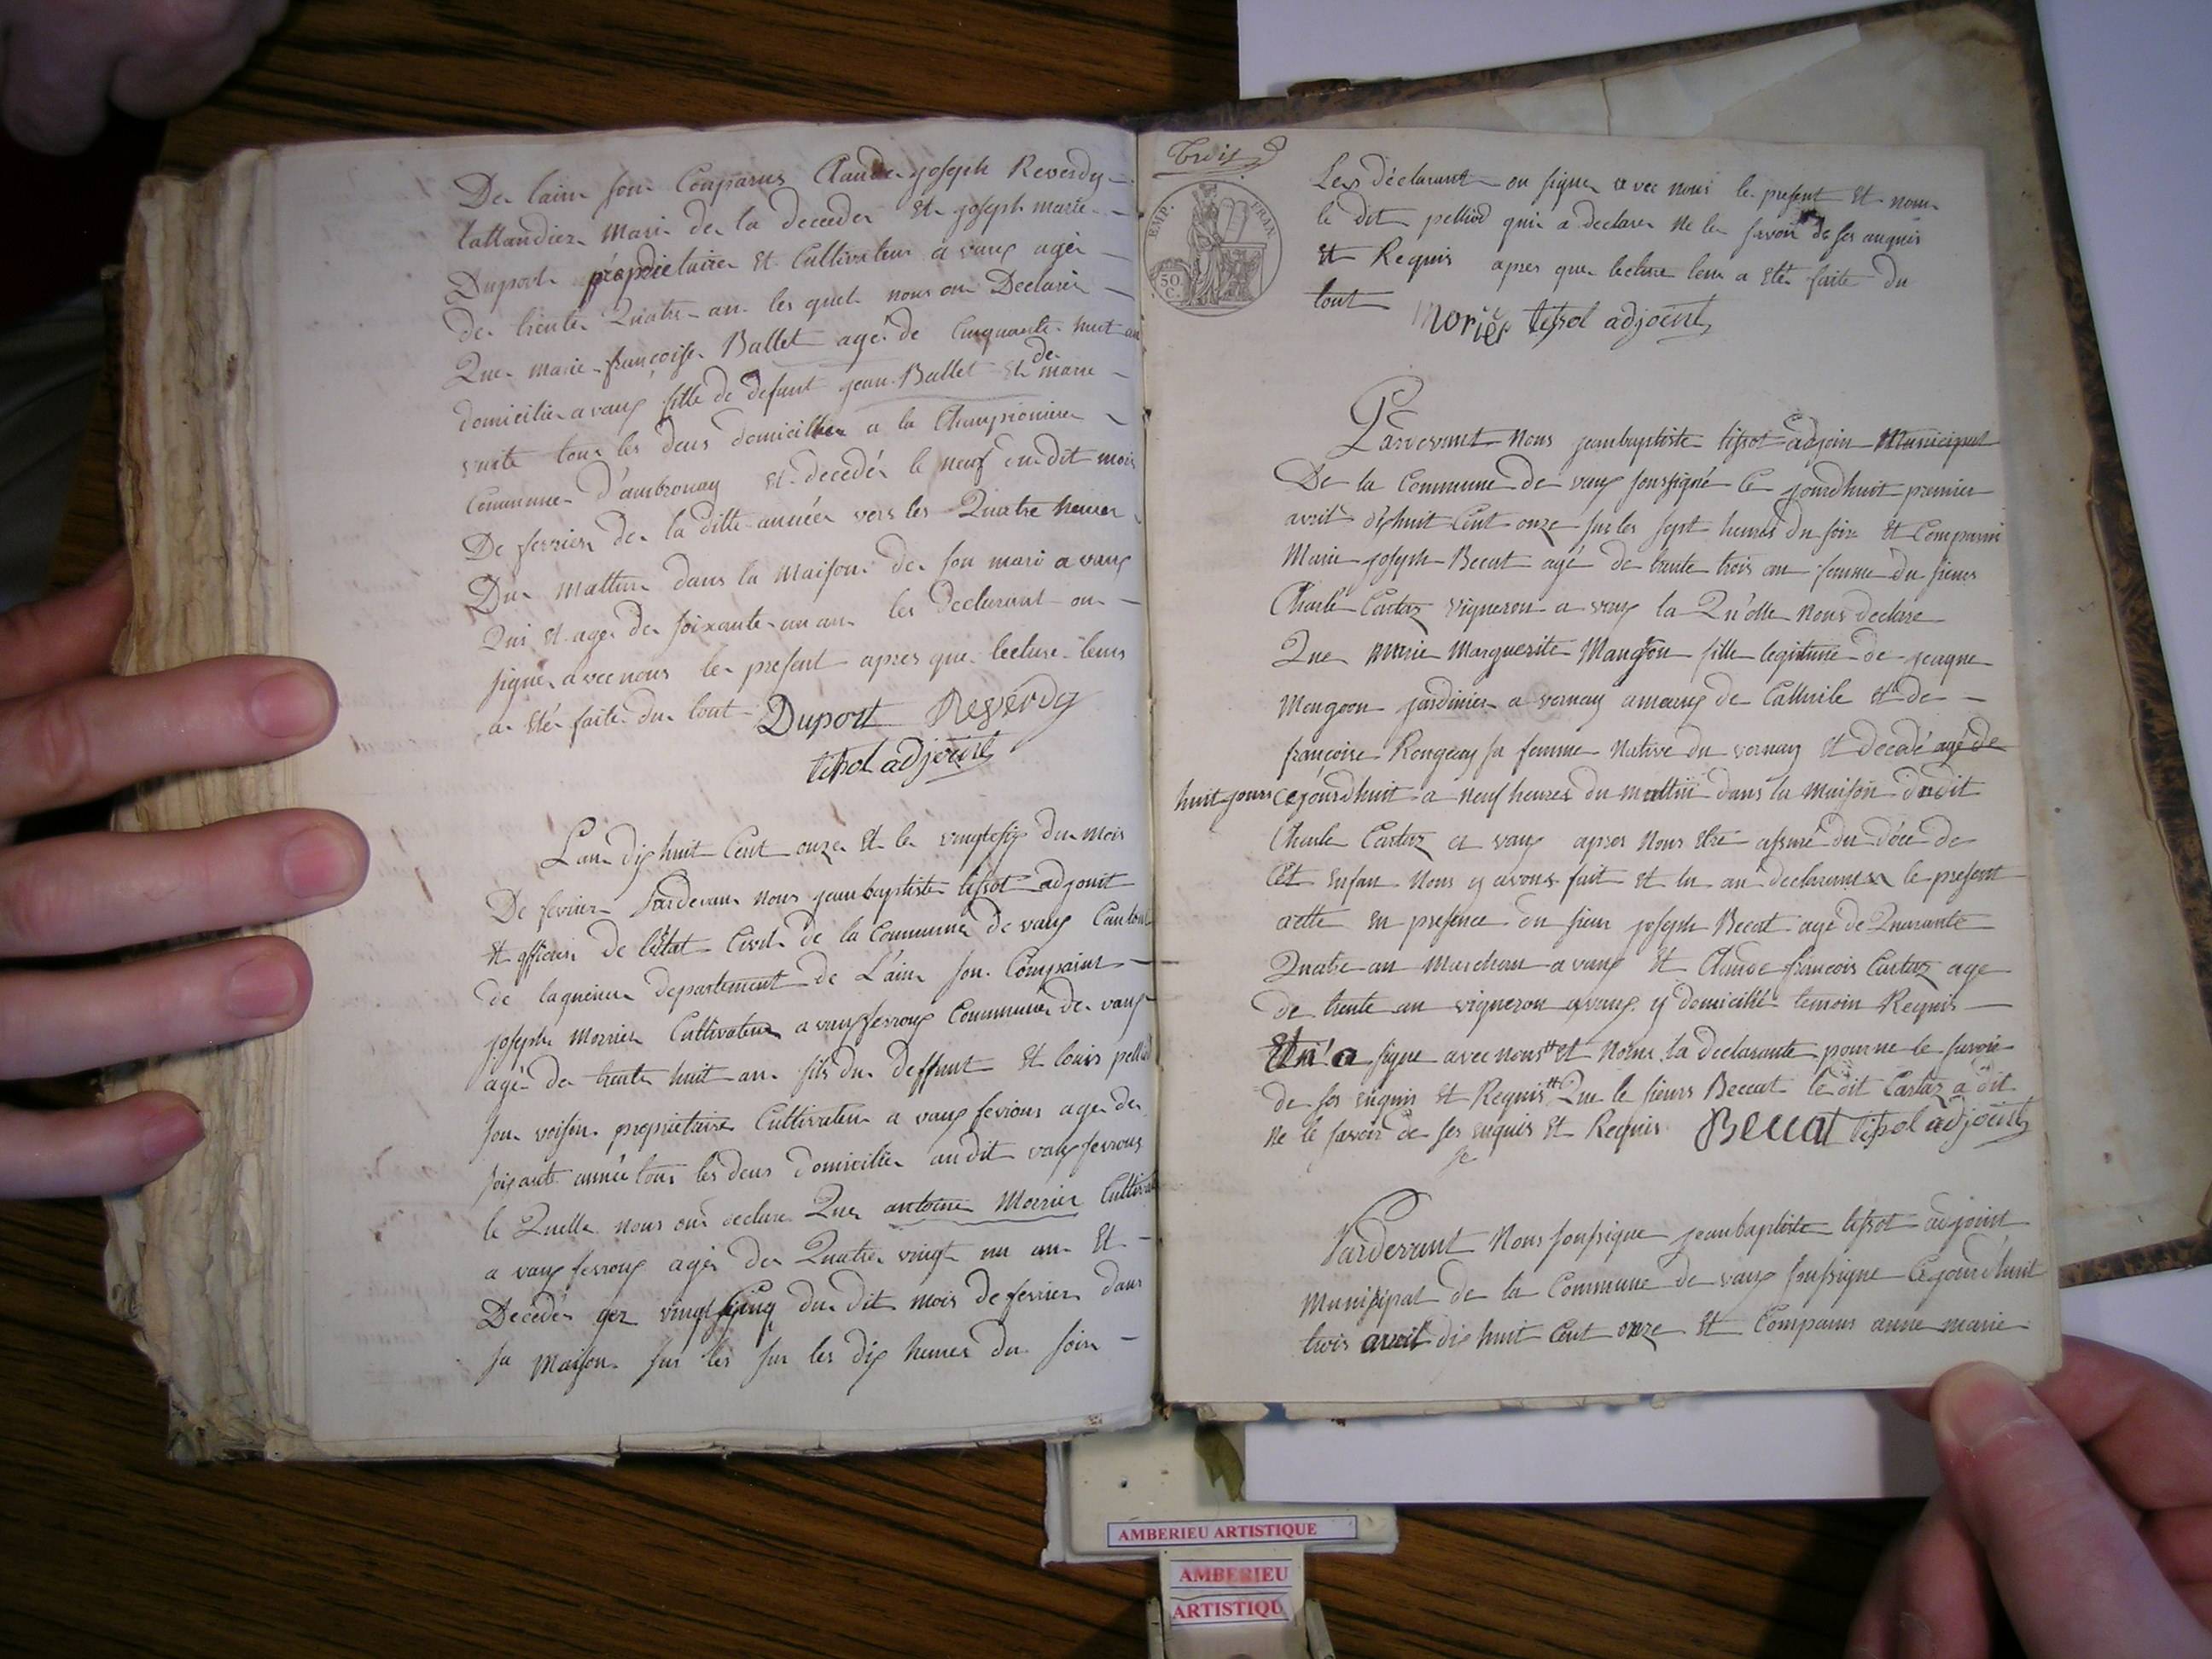 De lain son Comparus Claude joseph Reverdy
tallandier Mari de la decedee Et joseph marie
Duport propriétaire Et Cultivateur a vaux agé
de trente Quatre an les quel nous on Declaré
Que marie françoise Ballet agé de Cinquante huit an
domicilié a vaux fille de defunt jean Ballet Et de marie
tous les deus domicillier a la Championiere
Commune d'ambronay Et decedér le neuf dudit mois
De fevrier de la ditte année vers les Quatre heures
Du Mattin dans la Maison de son mari a vaux
Qui Et agé de soixante un an les Declarant on
signé avec nous le present apres que lecture leurs
a Eté faite du tout Duport Reverdy
tissot adjoint
Lan dix huit Cent onze Et le vingtesix du Mois
De fevrier Pardevan nous jean baptiste tissot adjoint
Et officier de létat Civil de la Commune de vaux Canton
de lagnieu departement de L'ain son Comparus
joseph Morrier Cultivateur a vaux fevroux Commune de vaux
agé de trente huit an fils du deffunt Et louis pelliod
son voisin propriétaire Cultivateur a vaux fevroux age de
soixante année tous les deus domicilier audit vaux fevroux
le Quelle nous on declare Que antoine Morrier Cultivat
a vaux fevroux agér de Quatre vingt un an Et
Decedér yer vingt cinq du dit mois de fevrier dans
sa Maison sur les sur les dix heures du soir
trois
EMP. FRAN.
50. C.
Les déclarant on signer avec nous le present Et non
le dit pelliod qui a declare ne le savoir de ses anquis
Et Requis apres que lecture leur a Eté faite du
tout Morier tissot adjoint
Pardevant Nous jean baptiste tissot adjoin Municipal
De la Commune de vaux soussigné Ce jourdhuit premier
avril dishuit Cent onze sur les sept heures du soir Et Comparu
Marie joseph Becat agé de trante trois an femme du sieur
Charle Cartaz vigneron a vaux la Qu'elle Nous declare
Que Marie Marguerite Mangon fille legitime de jeaque
Mongoon jardinier a vernay de Et de
françoise Rongeay sa femme Native du vernay Et decedé agé de
huit jours Ce jourdhuit a neuf heures du mattin dans la maison dudit
Charle Cartaz a vaux apres Nous Etre assuré du décé de
Cet enfan Nous y avons fait Et lu au declarante le present
actte en presence du sieur joseph Becat agé de Quarante
Quatre an Marchan a vaux Et Claude francois Cartaz age
de trente an vigneron a vaux y domicilié temoin Requis
Et n'a signe avec nous Et Nonu la declarante pour ne le savoir
de ses enquis Et Requis Que le sieurs Beccat le dit Cartaz a dit
Ne le savoir de ses enquis Et Requis Beccat tissot adjoint
Pardevant Nous soussigne jean baptiste tissot adjoint
Municipal de la Commune de vaux soussigne Cejourdhuit
trois avril dix huit Cent onze Et Comparus anne marie
AMBERIEU ARTISTIQUE
AMBERIEU
ARTISTIQU